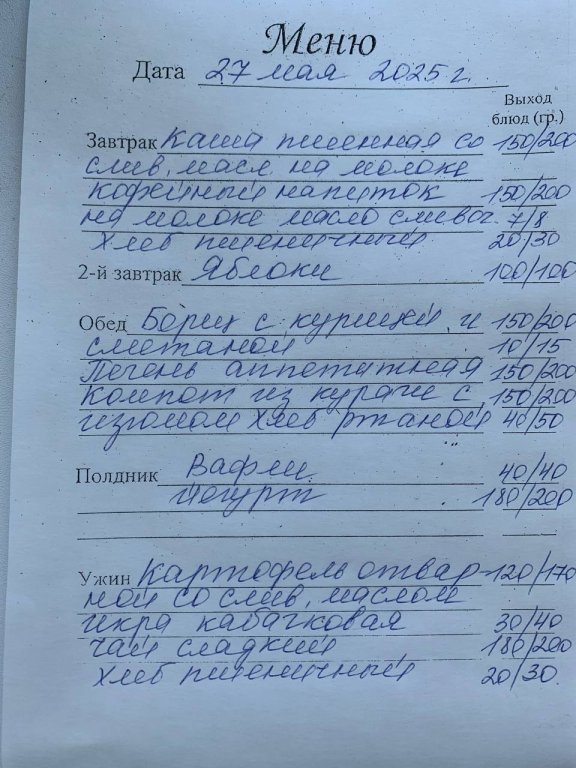 Меню
Дата 27 мая 2025 г.
Выход
блюд (гр.)
Завтрак Каша пшенная со 150/200
слив. масл. на молоке
кофейный напиток 150/200
на молоке масло сливоч. 7/8
хлеб пшеничный 20/30
2-й завтрак Яблоки 100/100
Обед Борщ с курицей и 150/200
сметаной 10/15
Печень аппетитная 150/200
Компот из кураги с 150/200
изюмом хлеб ржаной 40/50
Полдник Вафли 40/40
йогурт 180/200
Ужин Картофель отвар- 120/170
ной со слив. маслом
икра кабачковая 30/40
чай сладкий 180/200
хлеб пшеничный 20/30